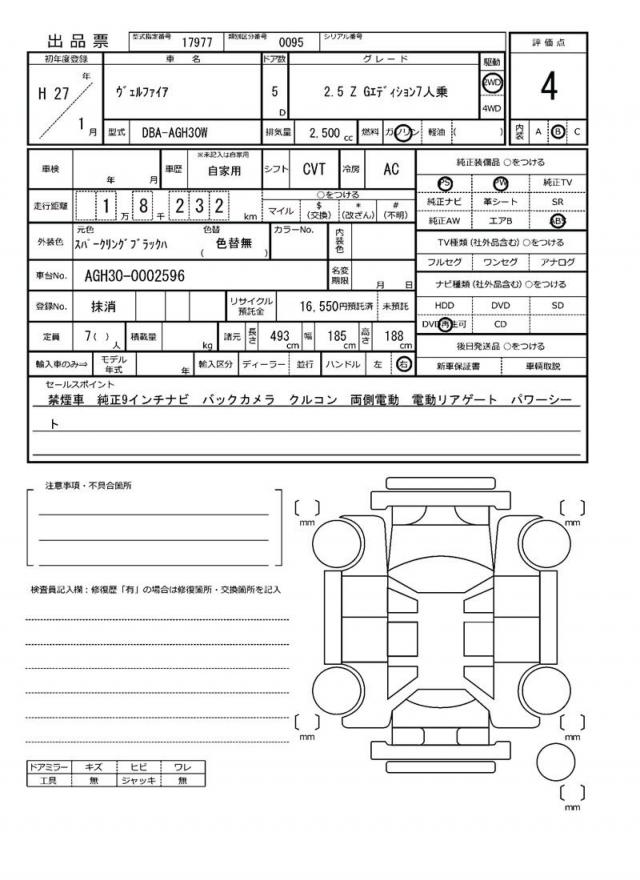 出品票 型式指定番号 17977 類別区分番号 0095 シリアル番号
初年度登録 車名 ドア数 グレード 駆動 評価点
H 27 年 1 月 ヴェルファイア 5 D 2.5 Z Gエディション7人乗 2WD 4WD 4
型式 DBA-AGH30W 排気量 2,500 cc 燃料 ガソリン 軽油 ( ) 内装 A B C
車検 年 月 車歴 ※未記入は自家用 自家用 シフト CVT 冷房 AC 純正装備品 ○をつける
PS PW 純正TV
走行距離 1 万 8 千 2 3 2 km ○をつける マイル $(交換) *(改ざん) #(不明) 純正ナビ 革シート SR
純正AW エアB ABS
外装色 元色 スパークリングブラックパ 色替 ( 色替無 ) カラーNo. 内装色 TV種類(社外品含む)○をつける
フルセグ ワンセグ アナログ
車台No. AGH30-0002596 名変期限 月 日 ナビ種類(社外品含む)○をつける
登録No. 抹消 リサイクル預託金 16,550円預託済 未預託 HDD DVD SD
DVD再生可 CD
定員 7( ) 人 積載量 kg 諸元 長さ 493 cm 幅 185 cm 高さ 188 cm 後日発送品 ○をつける
輸入車のみ⇒ モデル年式 年 輸入区分 ディーラー 並行 ハンドル 左 右 新車保証書 車輌取説
セールスポイント
禁煙車 純正9インチナビ バックカメラ クルコン 両側電動 電動リアゲート パワーシー
ト
注意事項・不具合箇所
mm mm
検査員記入欄:修復歴「有」の場合は修復箇所・交換箇所を記入
mm mm
ドアミラー キズ ヒビ ワレ
工具 無 ジャッキ 無
mm